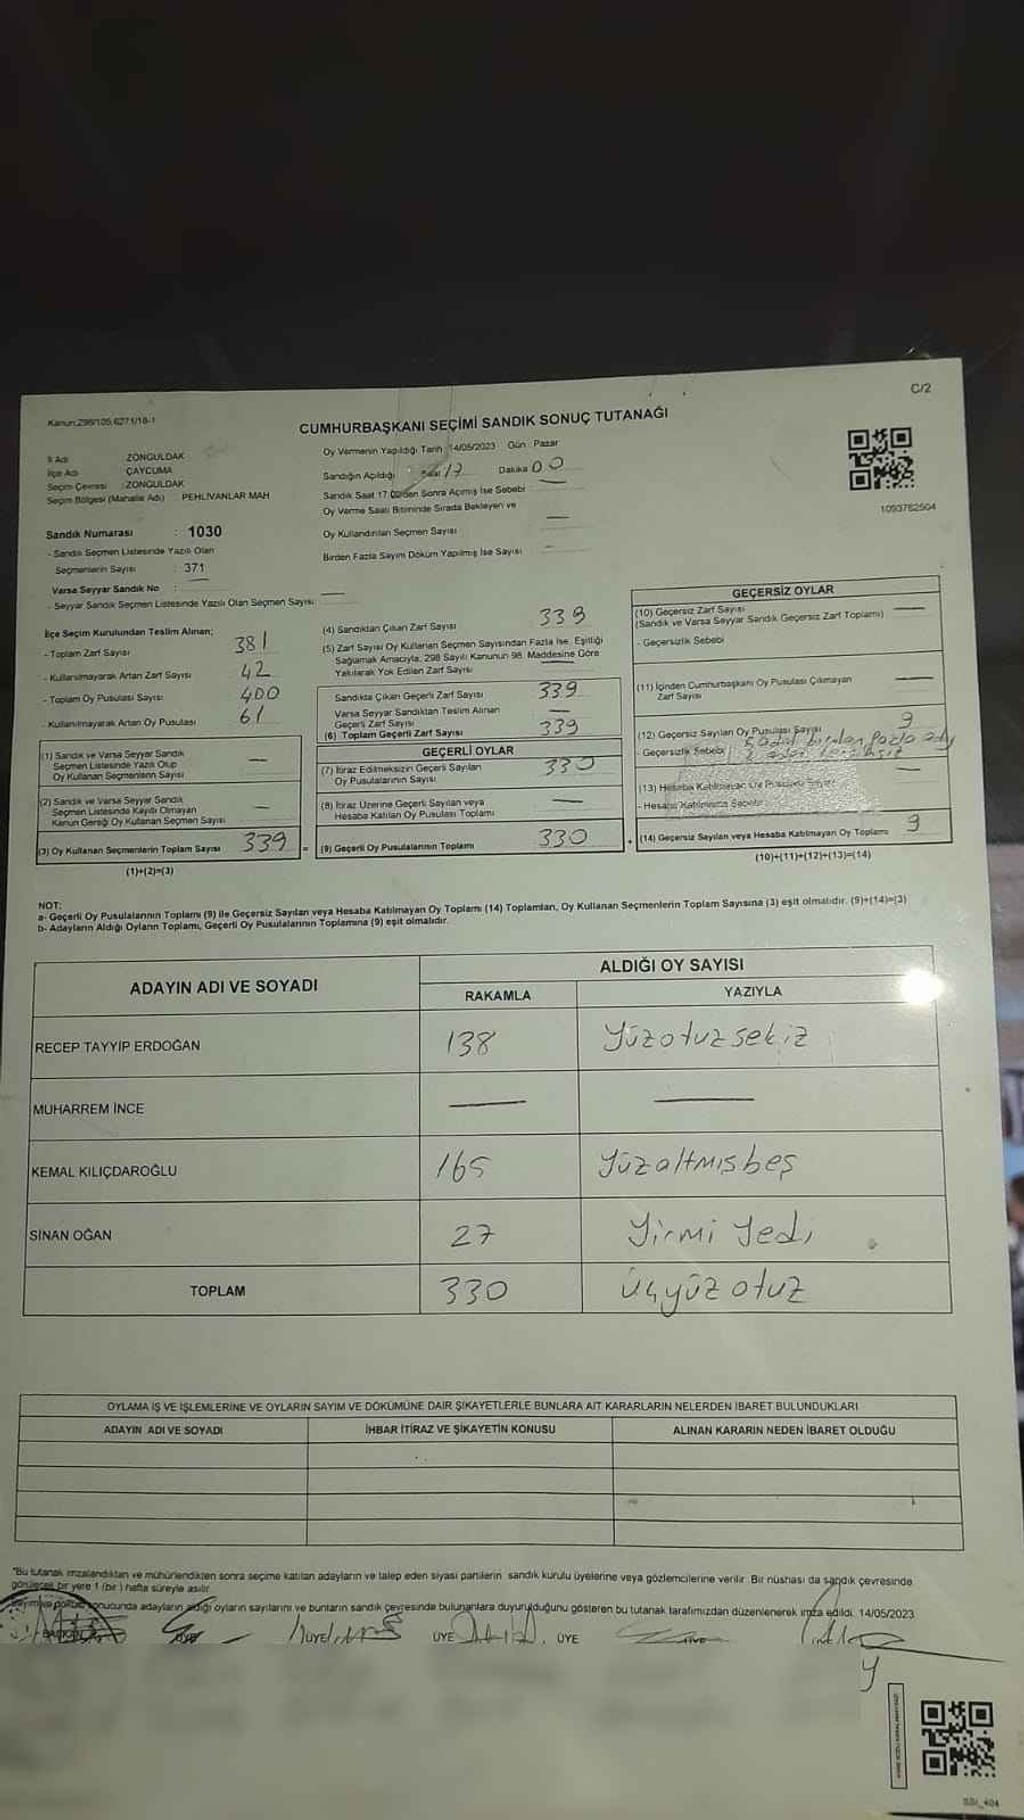 C/2
Kanun:298/105,6271/18-1
CUMHURBAŞKANI SEÇİMİ SANDIK SONUÇ TUTANAĞI
İl Adı ZONGULDAK
İlçe Adı ÇAYCUMA
Seçim Çevresi :ZONGULDAK
Seçim Bölgesi (Mahalle Adı) PEHLİVANLAR MAH
Oy Vermenin Yapıldığı Tarih 14/05/2023 Gün Pazar
Sandığın Açıldığı Saat 17 Dakika 00
Sandık Saat 17.00'den Sonra Açımış İse Sebebi
Oy Verme Saati Bitiminde Sırada Bekleyen ve
Oy Kullandırılan Seçmen Sayısı —
Birden Fazla Sayım Döküm Yapılmış İse Sayısı
1093762504
Sandık Numarası : 1030
- Sandık Seçmen Listesinde Yazılı Olan
Seçmenlerin Sayısı : 371
Varsa Seyyar Sandık No : —
- Seyyar Sandık Seçmen Listesinde Yazılı Olan Seçmen Sayısı: —
İlçe Seçim Kurulundan Teslim Alınan;
- Toplam Zarf Sayısı 381
- Kullanılmayarak Artan Zarf Sayısı 42
- Toplam Oy Pusulası Sayısı 400
- Kullanılmayarak Artan Oy Pusulası 61
(1) Sandık ve Varsa Seyyar Sandık
Seçmen Listesinde Yazılı Olup
Oy Kullanan Seçmenlerin Sayısı —
(2) Sandık ve Varsa Seyyar Sandık
Seçmen Listesinde Kayıtlı Olmayan
Kanun Gereği Oy Kullanan Seçmen Sayısı —
(3) Oy Kullanan Seçmenlerin Toplam Sayısı 339 =
(1)+(2)=(3)
(4) Sandıktan Çıkan Zarf Sayısı 339
(5) Zarf Sayısı Oy Kullanan Seçmen Sayısından Fazla İse, Eşitliği
Sağlamak Amacıyla, 298 Sayılı Kanunun 98. Maddesine Göre
Yakılarak Yok Edilen Zarf Sayısı —
Sandıkta Çıkan Geçerli Zarf Sayısı 339
Varsa Seyyar Sandıktan Teslim Alınan
Geçerli Zarf Sayısı —
(6) Toplam Geçerli Zarf Sayısı 339
GEÇERLİ OYLAR
(7) İtiraz Edilmeksizin Geçerli Sayılan
Oy Pusulalarının Sayısı 330
(8) İtiraz Üzerine Geçerli Sayılan veya
Hesaba Katılan Oy Pusulası Toplamı —
(9) Geçerli Oy Pusulalarının Toplamı 330 +
GEÇERSİZ OYLAR
(10) Geçersiz Zarf Sayısı
(Sandık ve Varsa Seyyar Sandık Geçersiz Zarf Toplamı) —
- Geçersizlik Sebebi
(11) İçinden Cumhurbaşkanı Oy Pusulası Çıkmayan
Zarf Sayısı —
(12) Geçersiz Sayılan Oy Pusulası Sayısı 9
- Geçersizlik Sebebi birden fazla
(13) Hesaba Katılmayan Oy Pusulası Sayısı —
- Hesaba Katılmama Sebebi
(14) Geçersiz Sayılan veya Hesaba Katılmayan Oy Toplamı 9
(10)+(11)+(12)+(13)=(14)
NOT:
a- Geçerli Oy Pusulalarının Toplamı (9) ile Geçersiz Sayılan veya Hesaba Katılmayan Oy Toplamı (14) Toplamları, Oy Kullanan Seçmenlerin Toplam Sayısına (3) eşit olmalıdır. (9)+(14)=(3)
b- Adayların Aldığı Oyların Toplamı, Geçerli Oy Pusulalarının Toplamına (9) eşit olmalıdır.
ADAYIN ADI VE SOYADI ALDIĞI OY SAYISI
RAKAMLA YAZIYLA
RECEP TAYYİP ERDOĞAN 138 Yüzotuzsekiz
MUHARREM İNCE — —
KEMAL KILIÇDAROĞLU 165 Yüzaltmışbeş
SİNAN OĞAN 27 Yirmi Yedi
TOPLAM 330 Üçyüz otuz
OYLAMA İŞ VE İŞLEMLERİNE VE OYLARIN SAYIM VE DÖKÜMÜNE DAİR ŞİKAYETLERLE BUNLARA AİT KARARLARIN NELERDEN İBARET BULUNDUKLARI
ADAYIN ADI VE SOYADI İHBAR İTİRAZ VE ŞİKAYETİN KONUSU ALINAN KARARIN NEDEN İBARET OLDUĞU
*Bu tutanak imzalandıktan ve mühürlendikten sonra seçime katılan adayların ve talep eden siyasi partilerin sandık kurulu üyelerine veya gözlemcilerine verilir. Bir nüshası da sandık çevresinde
görülecek bir yere 1 (bir) hafta süreyle asılır.
sonucunda adayların aldığı oyların sayılarını ve bunların sandık çevresinde bulunanlara duyurulduğunu gösteren bu tutanak tarafımızdan düzenlenerek imza edildi. 14/05/2023
BAŞKAN ÜYE ÜYE ÜYE ÜYE